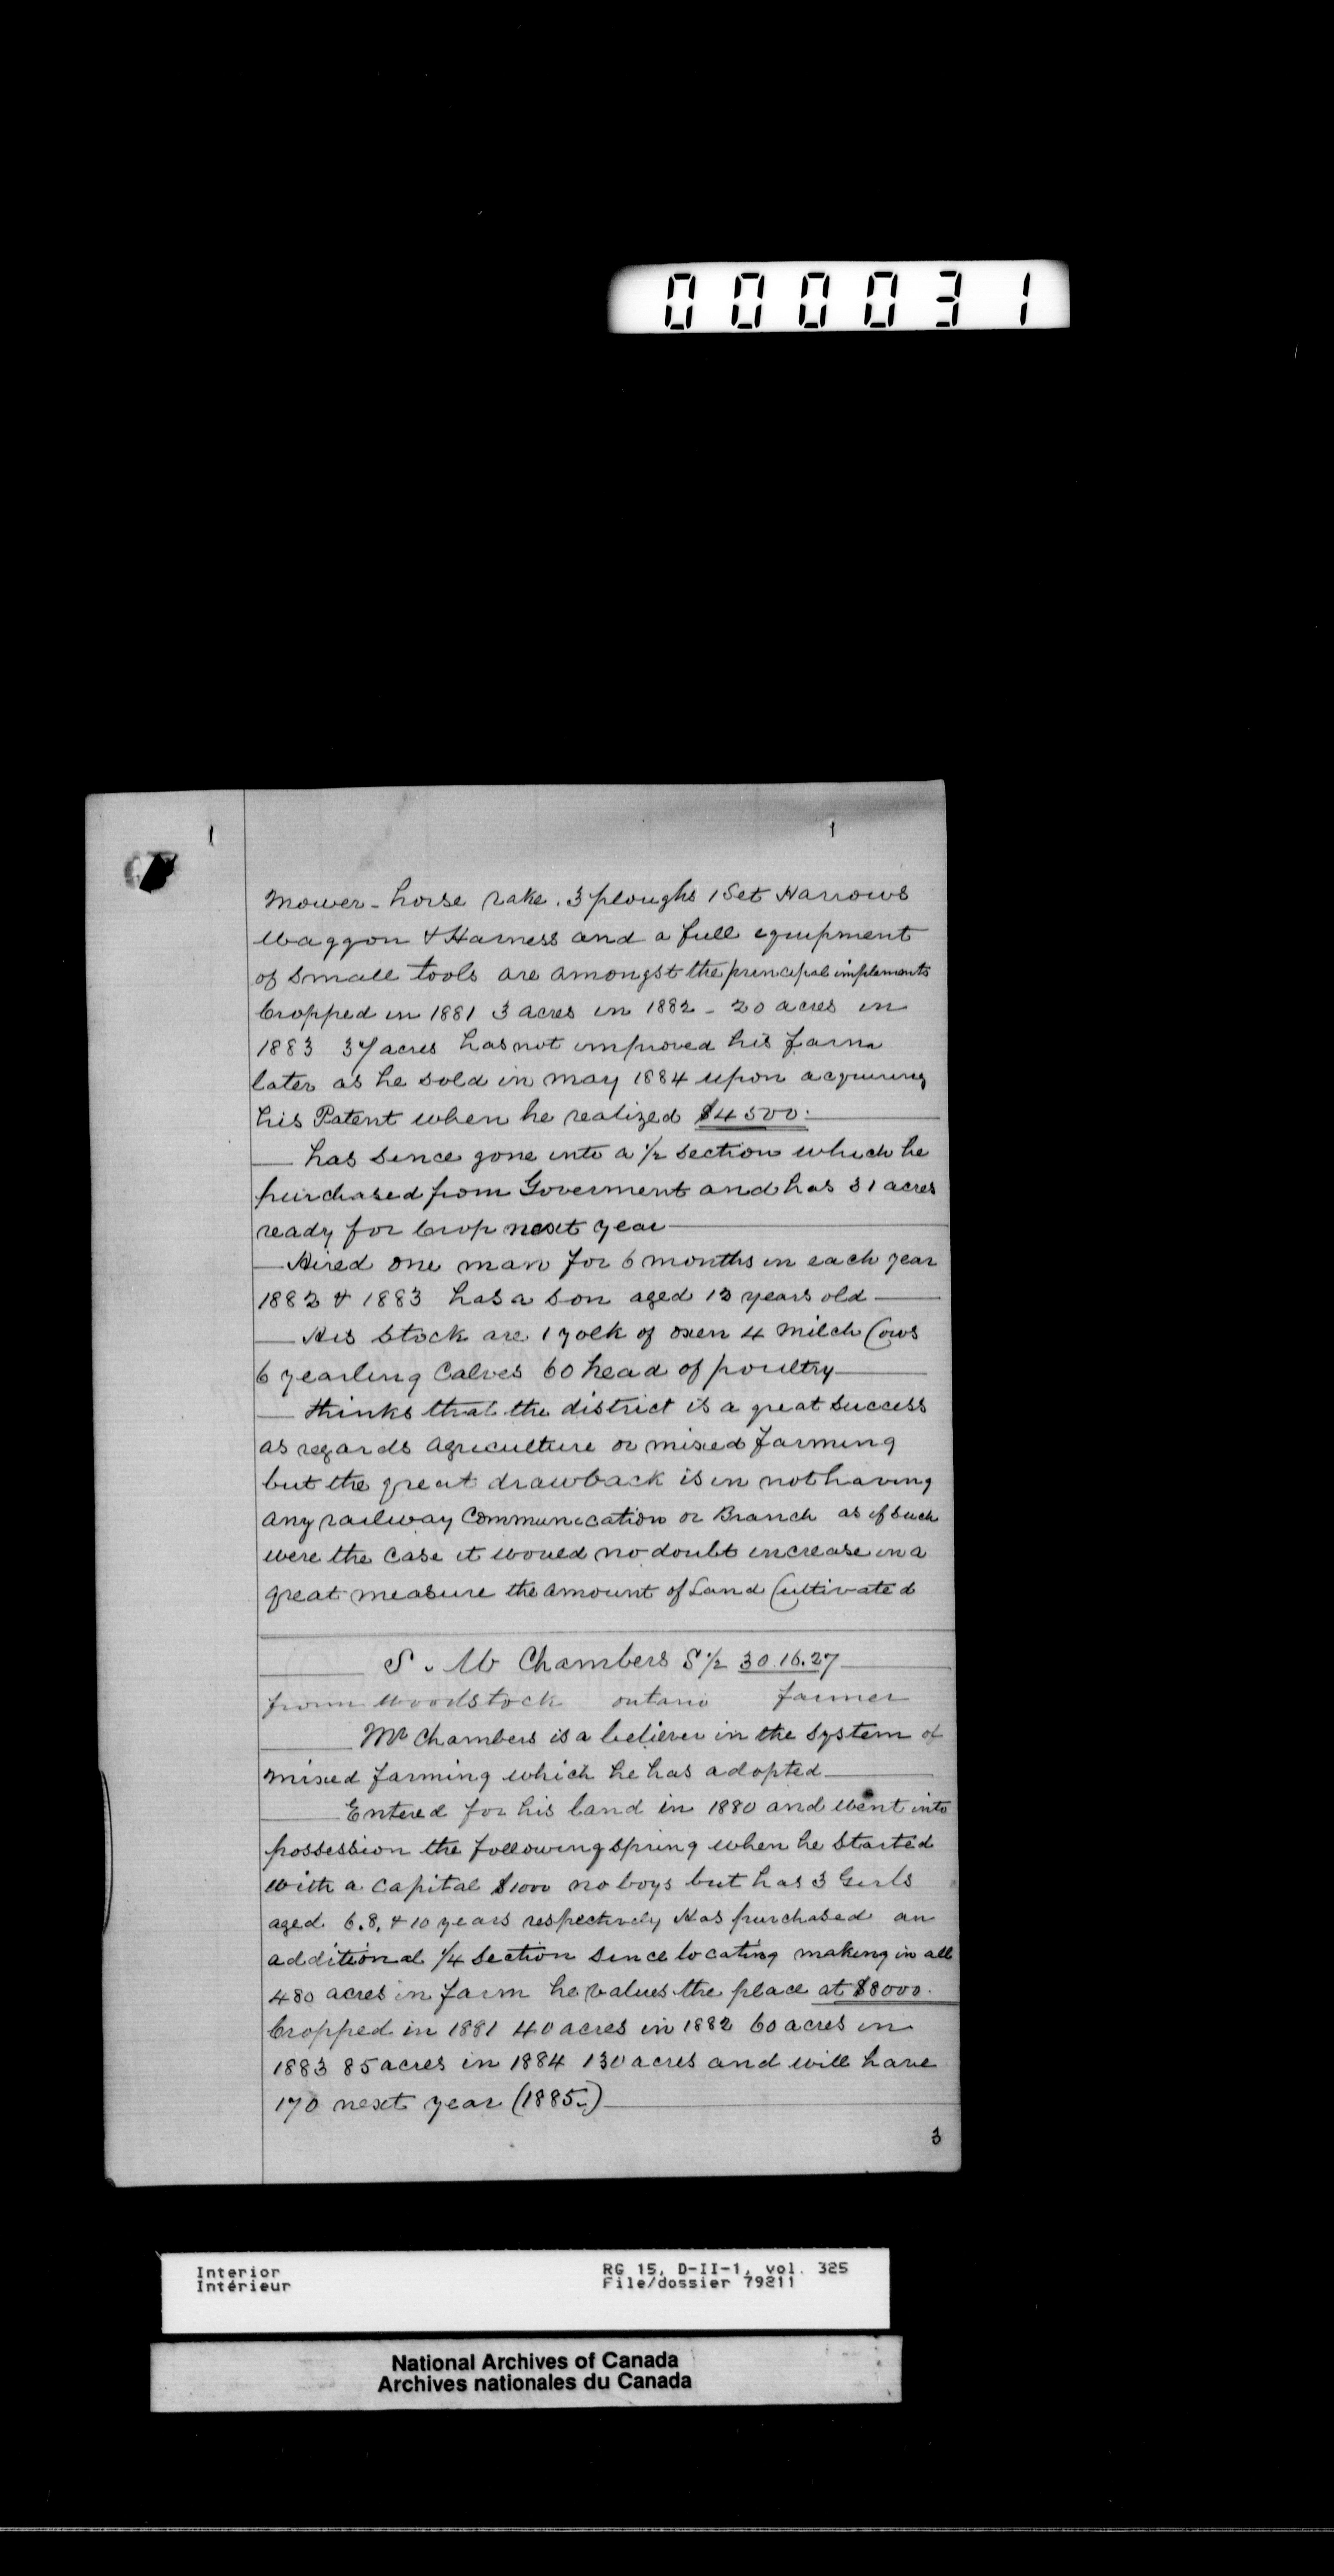 000031
1 1
Mower - horse rake. 3 ploughs 1 Set Harrows
Waggon & Harness and a full equipment
of small tools are amongst the principal implements
Cropped in 1881 3 acres in 1882 - 20 acres in
1883 37 acres has not improved his farm
later as he sold in may 1884 upon acquiring
his Patent when he realized $4500.
has since gone into a 1/2 section which he
purchased from Goverment and has 31 acres
ready for Crop next year
Hired one man for 6 months in each year
1882 & 1883 has a son aged 13 years old
His stock are 1 yolk of oxen 4 Milch Cows
6 yearling Calves 60 head of poultry
thinks that the district is a great success
as regards agriculture or mixed farming
but the great drawback is in not having
any railway Communication or Branch as if such
were the case it would no doubt increase in a
great measure the amount of Land Cultivated
S. W Chambers S 1/2 30.16.27
from Woodstock ontario farmer
Mr Chambers is a believer in the system of
mixed farming which he has adopted
Entered for his land in 1880 and went into
possession the following spring when he started
with a capital $1000 no boys but has 3 Girls
aged 6. 8. & 10 years respectively Has purchased an
additional 1/4 section since locating making in all
480 acres in farm he values the place at $8000.
Cropped in 1881 40 acres in 1882 60 acres in
1883 85 acres in 1884 130 acres and will have
170 next year (1885.)
3
Interior RG 15, D-II-1, vol. 325
Intérieur File/dossier 79211
National Archives of Canada
Archives nationales du Canada